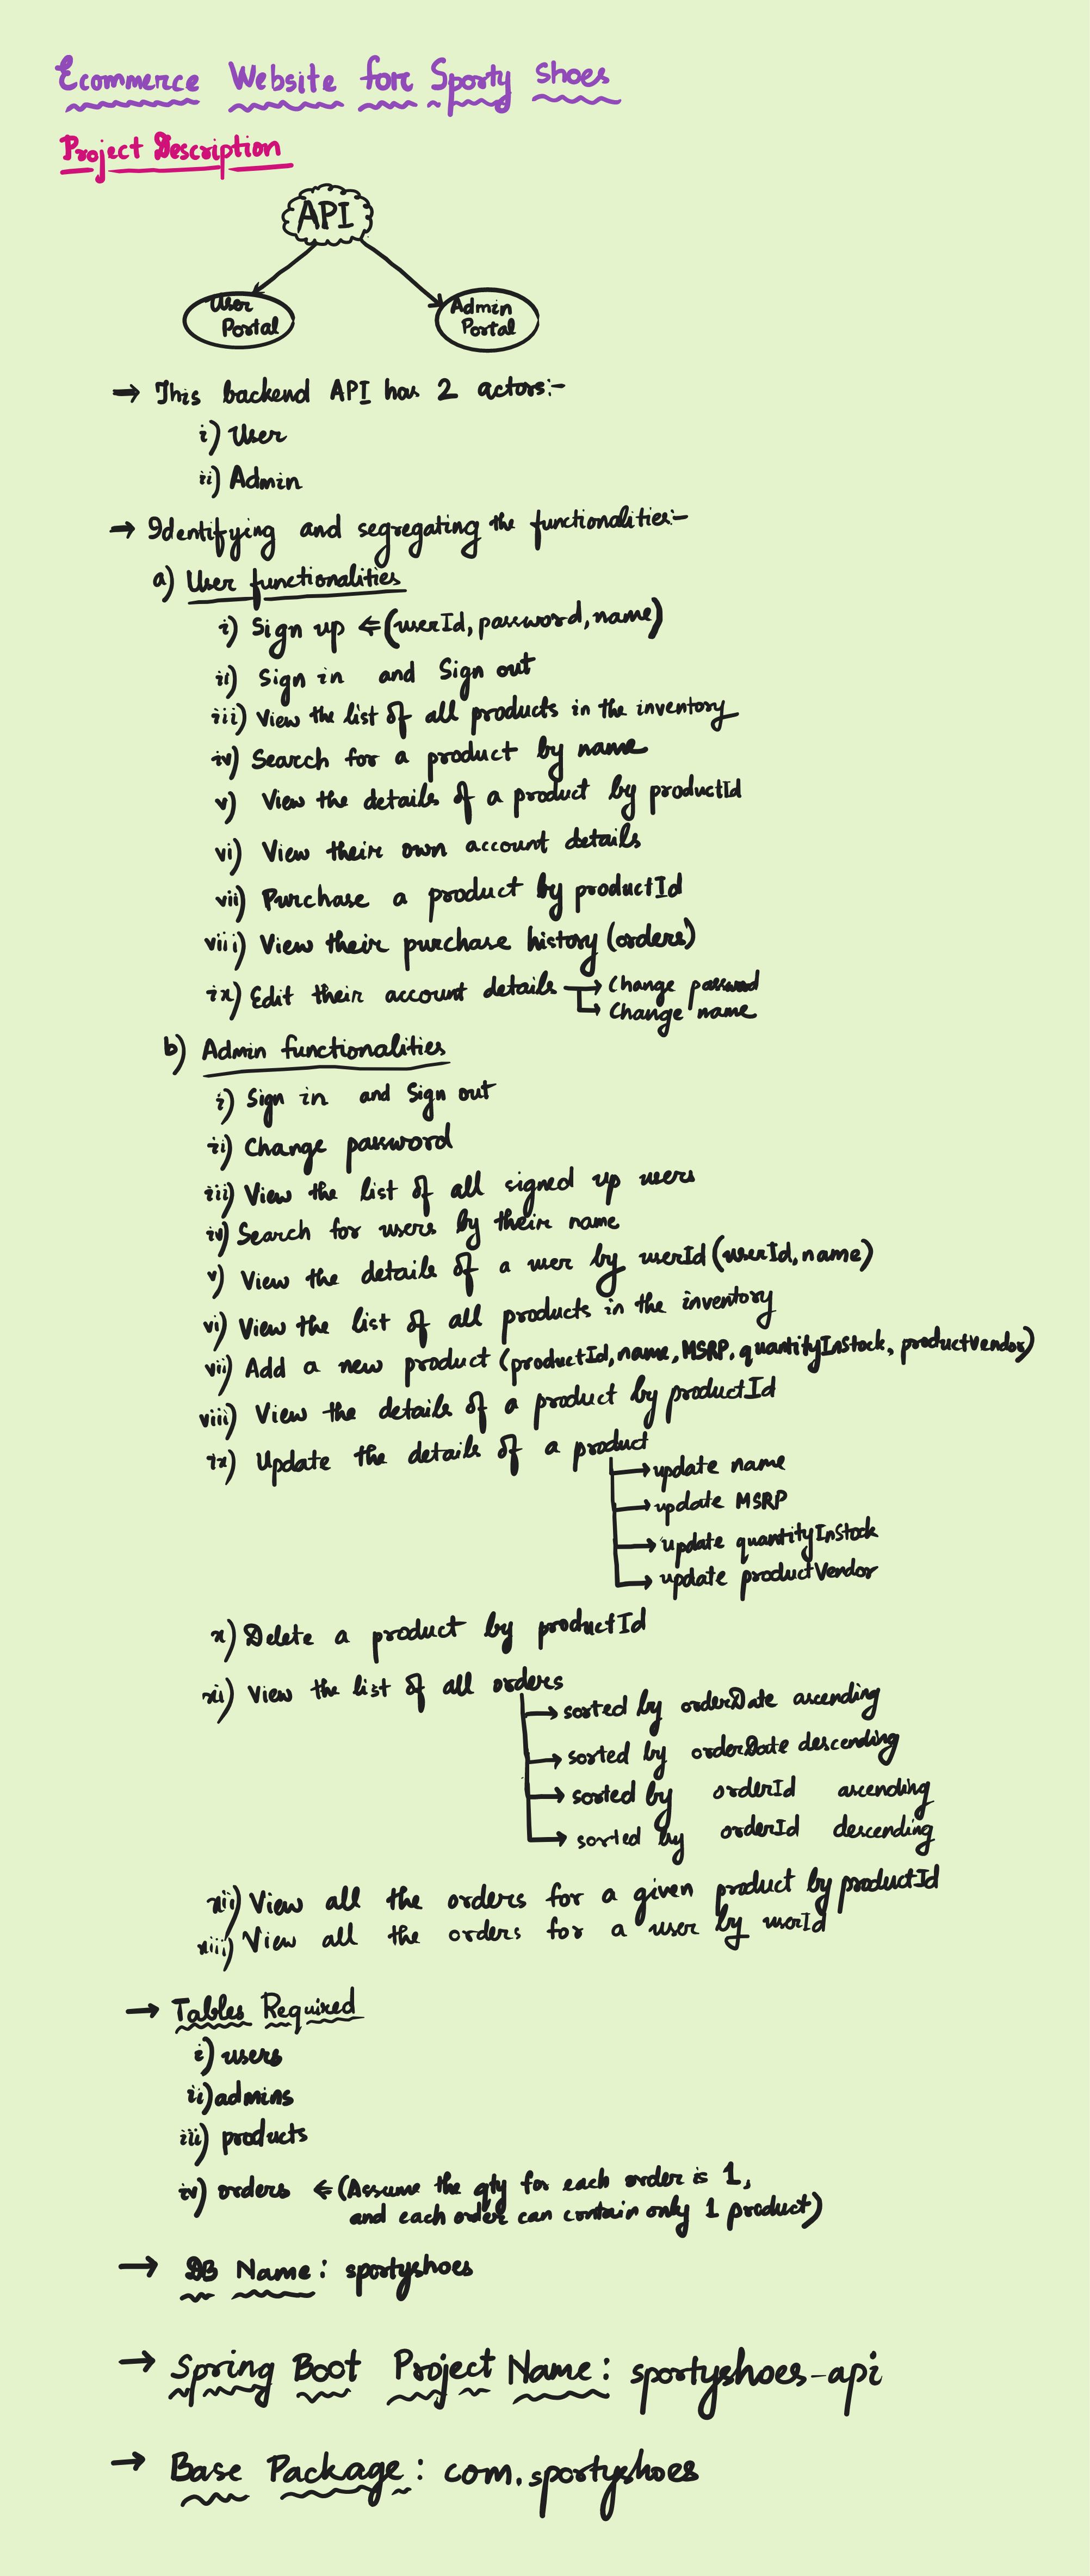 Ecommerce Website for Sporty Shoes
Project Description
API
User
Portal
Admin
Portal
→ This backend API has 2 actors:-
i) User
ii) Admin
→ Identifying and segregating the functionalities:-
a) User functionalities
i) Sign up ⇐ (userId, password, name)
ii) Sign in and Sign out
iii) View the list of all products in the inventory
iv) Search for a product by name
v) View the details of a product by productId
vi) View their own account details
vii) Purchase a product by productId
viii) View their purchase history (orders)
ix) Edit their account details → Change password
→ Change name
b) Admin functionalities
i) Sign in and Sign out
ii) Change password
iii) View the list of all signed up users
iv) Search for users by their name
v) View the details of a user by userId (userId, name)
vi) View the list of all products in the inventory
vii) Add a new product (productId, name, MSRP, quantityInStock, productVendor)
viii) View the details of a product by productId
ix) Update the details of a product
→ update name
→ update MSRP
→ update quantityInStock
→ update productVendor
x) Delete a product by productId
xi) View the list of all orders
→ sorted by orderDate ascending
→ sorted by orderDate descending
→ sorted by orderId ascending
→ sorted by orderId descending
xii) View all the orders for a given product by productId
xiii) View all the orders for a user by userId
→ Tables Required
i) users
ii) admins
iii) products
iv) orders ⇐ (Assume the qty for each order is 1,
and each order can contain only 1 product)
→ DB Name: sportyshoes
→ Spring Boot Project Name: sportyshoes-api
→ Base Package: com.sportyshoes